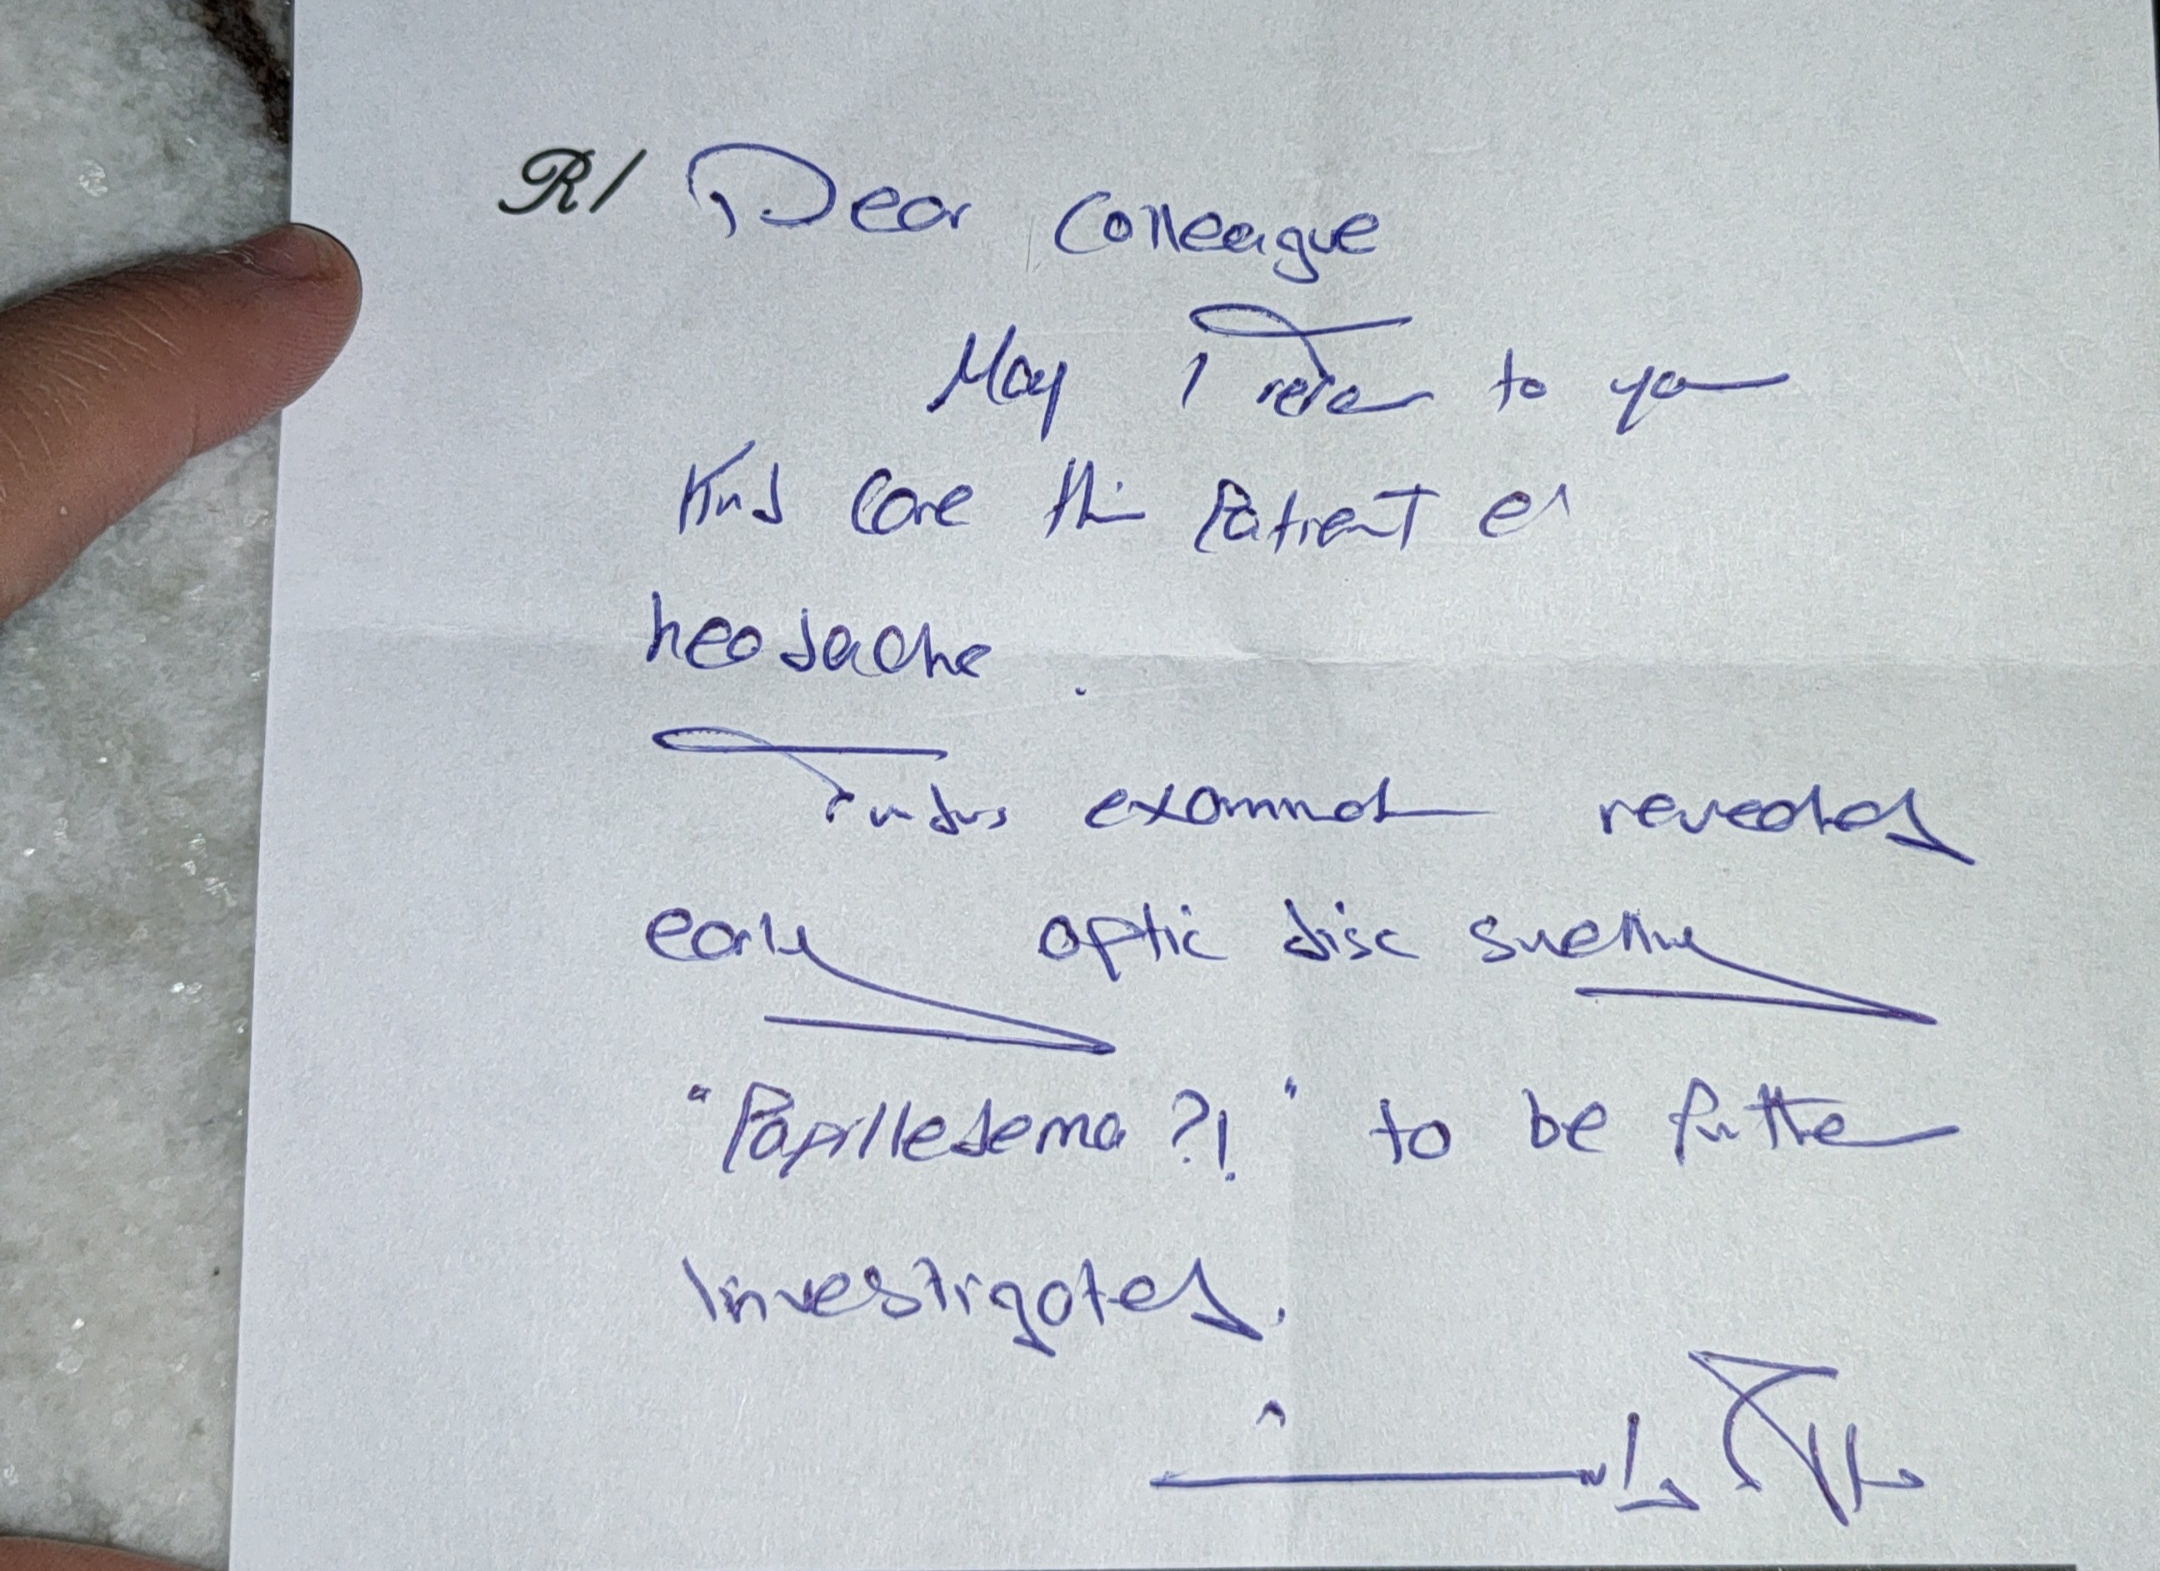 R/ Dear Colleague
May I refer to you
Kind Care this Patient c̄
headache.
Fundus examination revealed
early optic disc swelling
"Papilledema ?!" to be further
investigated.